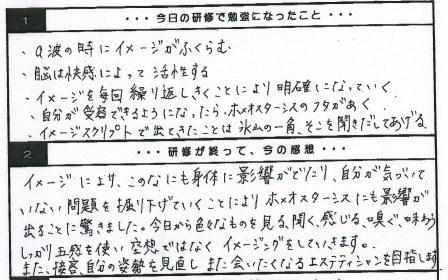 1 ・・・今日の研修で勉強になったこと・・・
・α波の時にイメージがふくらむ
・脳は快感によって活性する
・イメージを毎回繰り返しきくことにより明確になっていく
・自分が受容できるようになったらホメオスターシスのフタがあく
・イメージスクリプトで出てきたことは氷山の一角、そこを聞きだしてあげる
2 ・・・研修が終って、今の感想・・・
イメージにより、このなにも身体に影響がでたり、自分が気づいて
いない問題を掘り下げていくことによりホメオスターシスにも影響が
出ることに驚きました。今日から色々なものを見る、聞く、感じる、嗅ぐ、味わう
しっかり五感を使い空想ではなくイメージングをしていきます。
また、接客、自分の姿勢を見直しまた会いたくなるエステティシャンを目指します